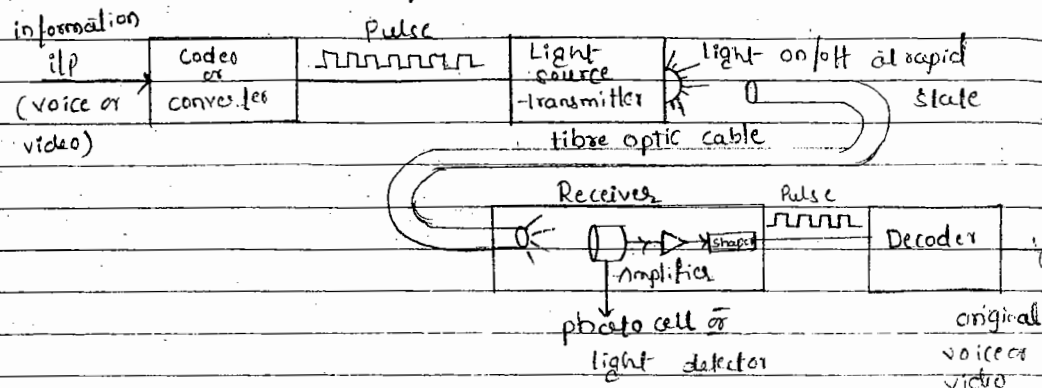 information
i/p
(voice or
video)
Coder
or
converter
Pulse
Light
source
transmitter
light on/off at rapid
state
fibre optic cable
Receiver
Amplifier
shaper
photo cell or
light detector
Pulse
Decoder
original
voice or
video